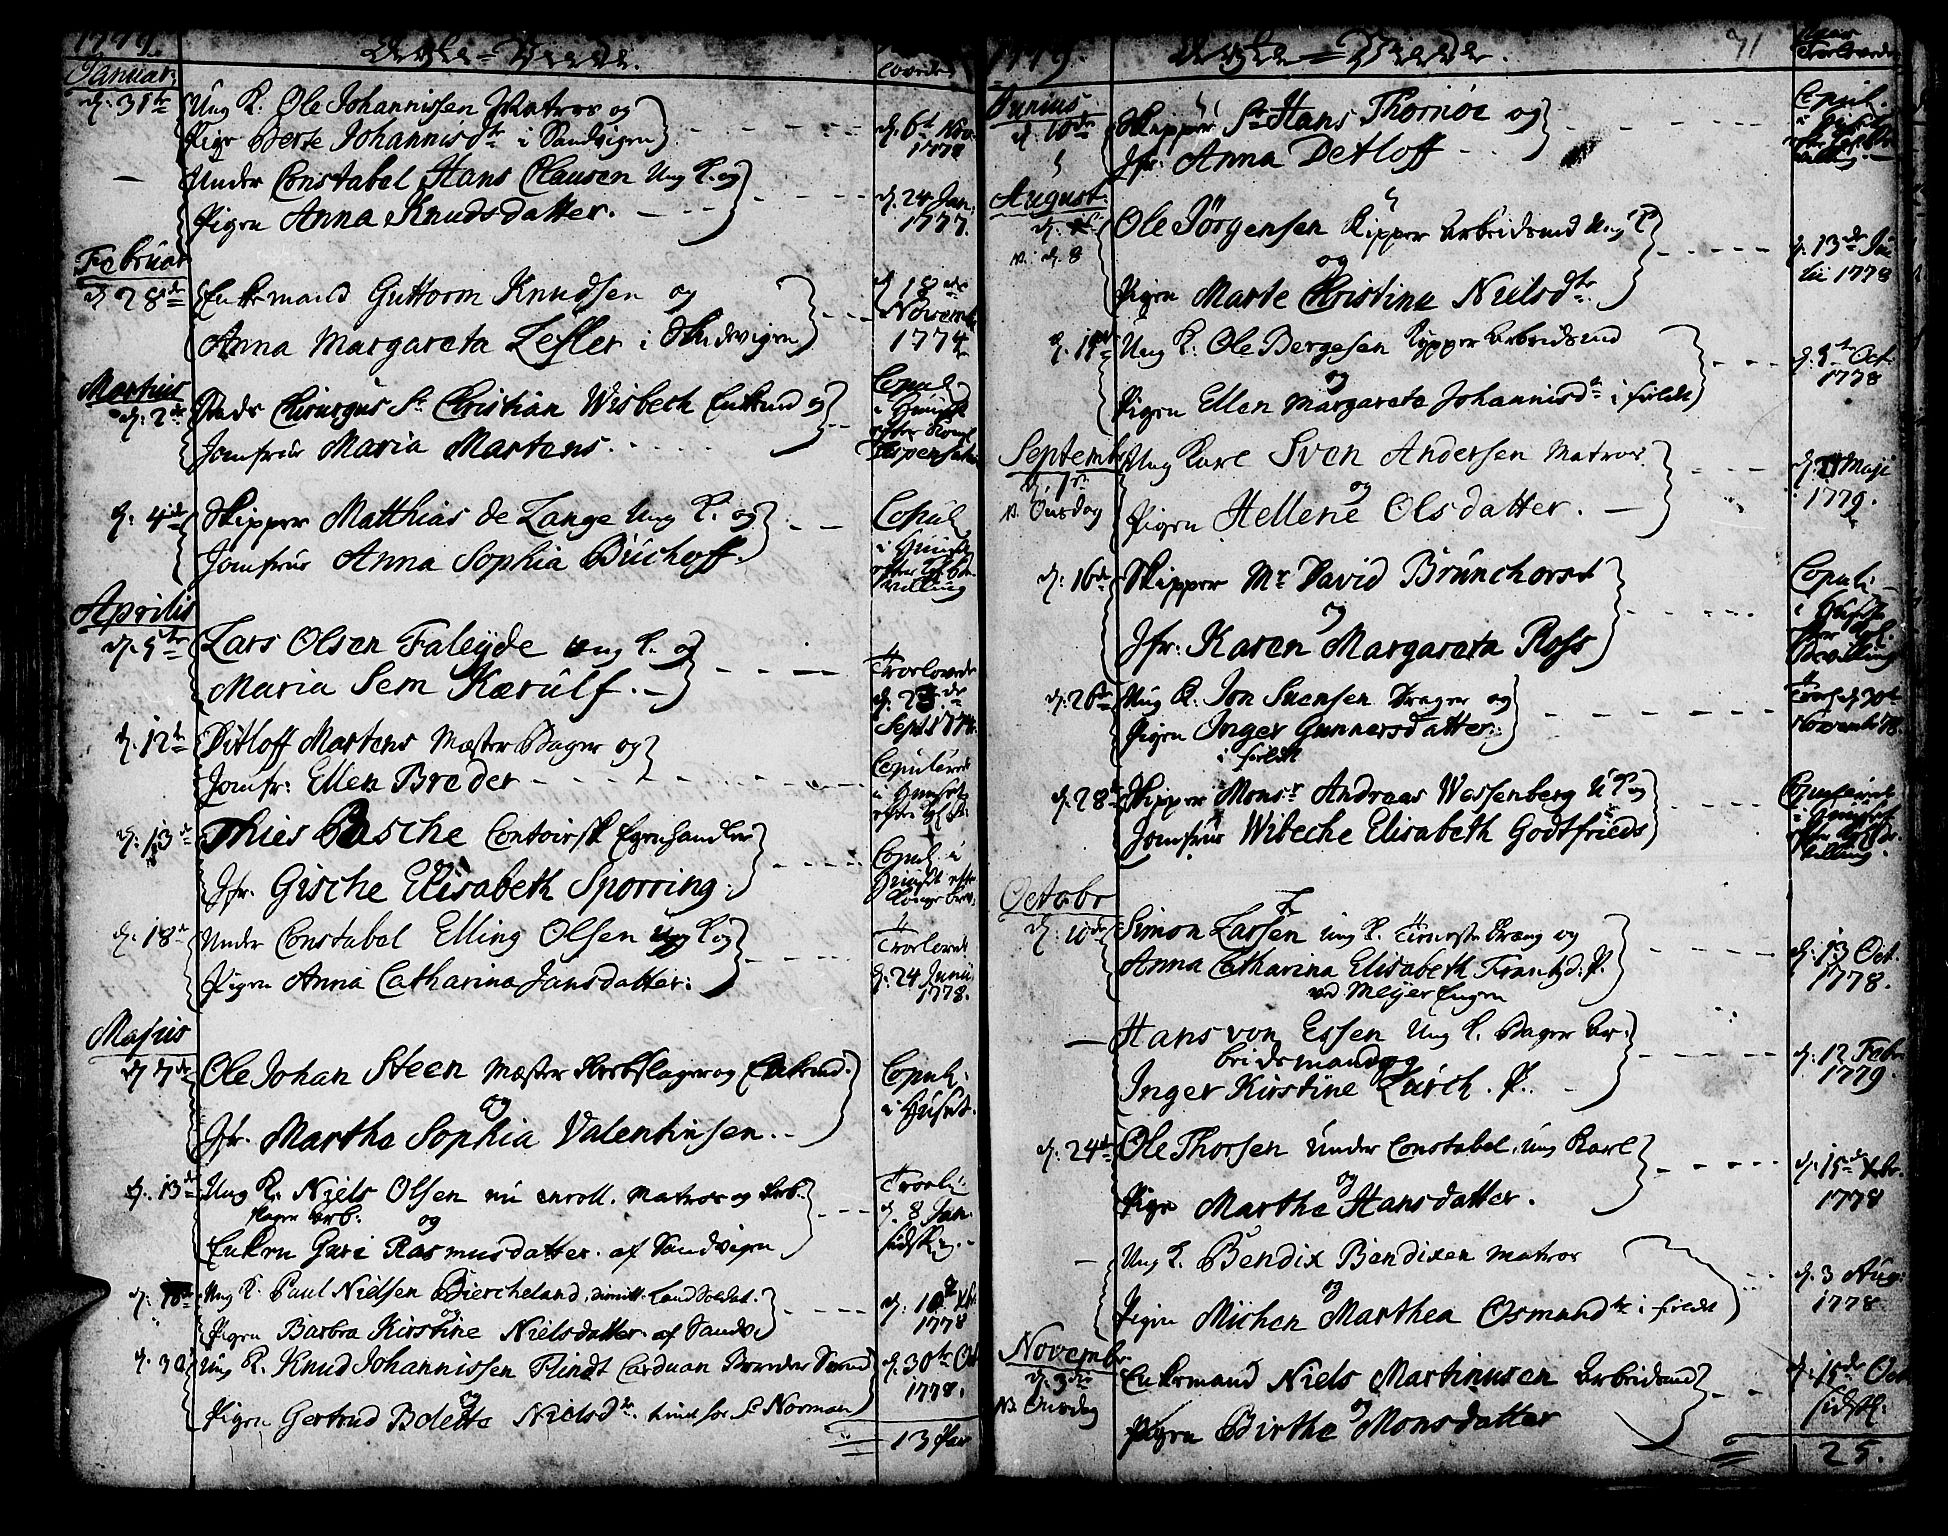 1779.
Ægte-Viede.
Januar:
d. 31te Ung K. Ole Johannissen Matros og
Pige Berte Johannisdtr i Sandvigen
d. 6te Nov. 1778
Under Constabel Hans Clausen Ung K. og
Pigen Anna Knudsdatter.
d. 24 Jan. 1777.
Februar
d 28de Enkemand Guttorm Knudsen og
Anna Margareta Lesler i Skudevigen
d 18de Novemb. 1774
Martius
d. 2de Stads Chirurgus Sr Christian Wisbech Enkemd og
Jomfrue Maria Martens.
Copul. i Huuset efter Kongl. Dispensation
d. 4de Skipper Matthias de Lange Ung K. og
Jomfrue Anna Sophia Büchoff.
Copul. i Huuset efter Kgl. Bevilling
Aprilis
d. 5te Lars Olsen Faleyde ung K. og
Maria Sem Kærulf.
Troelovede d. 23de Sept. 1774.
d. 12te Ditloff Martens Mæster Bager og
Jomfr: Ellen Breder
Copulerede i Huuset efter Kgl. B.
d. 13de Thies Pasche Contoirsk Egenhandler
og
Jfr. Gische Elisabeth Sporring.
Copul. i Huuset efter Kongebrev.
d. 18de Under Constabel Elling Olsen ung K og
Pigen Anna Catharina Jansdatter.
Troelovede d. 24 Junii 1778.
Majus
d 7de Ole Johan Steen Mæster Rebslager og Enkemd.
og
Jfr. Martha Sophia Valentinsen.
Copul. i Huset.
d. 13de Ung K. Niels Olsen nu enroll. Matros og Reb-
slager Arb:
og
Enken Guri Rasmusdatter af Sandvigen
Troelov. d. 8 Jan. sidstl.
Ung K. Paul Nielsen Biercheland, dimitt. Landsoldat.
og
Pigen Barbra Kirstine Nielsdatter af Sandv.
d. 10de Xbr. 1778
d. 30 Ung K. Knud Johannissen Flindt Carduan Bereder Svend
og
Pigen Gertrud Boletta Nielsdtr. tient for Sr Norman
d. 30te Oct 1778.
13 Par
1779.
Ægte-Viede.
71
Naar Troelovede
Junius
d. 10de Skipper Sr Hans Thornöe og
Jfr: Anna Detloff
Copul. i Huset efter Kgl. Bevilling.
August.
d. 8 Ole Jörgensen Kipper Arbeidsmd Ung K
og
Pigen Marte Christine Nielsdtr.
d. 13de Julii 1778
Ung K. Ole Bergesen Kipper Arbeidsmd
og
Pigen Ellen Margareta Johannisdtr i foreldt
d. 5te Oct. 1778
Septembr
N. Onsdag
Ung Karl Sven Andersen Matros
og
Pigen Hellene Olsdatter.
Maji 1779.
d. 16de Skipper Mr David Brünchorst
og
Jfr: Karen Margareta Ross
Copul: i Huset efter Kgl. Bevilling
d. 26de Ung K. Jon Suensen Drager og
Pigen Inger Gunnersdatter.
Troel. d. 30te Novemb. 78.
d. 28de Skipper Monsr Andreas Wessenberg U K og
Jomfrue Wibeche Elisabeth Godtfrieds
Copulerede i Huuset efter Kgl. Bevilling.
Octobr
d. 10de Simon Larsen ung K. og
Anna Catharina Elisabeth Frantzd. P.
ved Meijer Engen
d. 13 Oct. 1778.
Hans von Essen Ung K. Bager Ar-
beidsmand og
Inger Kirstine Lürch. P.
d. 12 Febr. 1779.
d. 24de Ole Thorsen Under Constabel, ung Karl
og
Pige Martha Hansdatter.
d. 15de Xbr. 1778
Ung K. Bendix Bendixen Matros
og
Pigen Michen Marthea Osmundsdtr i foreldt
d. 3 Aug: 1778.
Novembr.
d. 3die
N. Onsdag
Enkemand Niels Martinusen Arbeidsmd
og
Pigen Birthe Monsdatter
d. 15de Oct sidstl.
25.